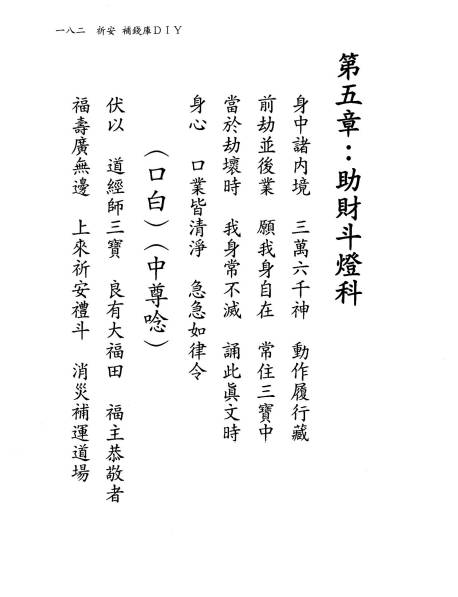 一八二　祈安 補錢庫ＤＩＹ
第五章：助財斗燈科
身中諸內境　三萬六千神　動作履行藏
前劫並後業　願我身自在　常住三寶中
當於劫壞時　我身常不滅　誦此眞文時
身心　口業皆清淨　急急如律令
（口白）（中尊唸）
伏以　道經師三寶　良有大福田　福主恭敬者
福壽廣無邊　上來祈安禮斗　消災補運道場